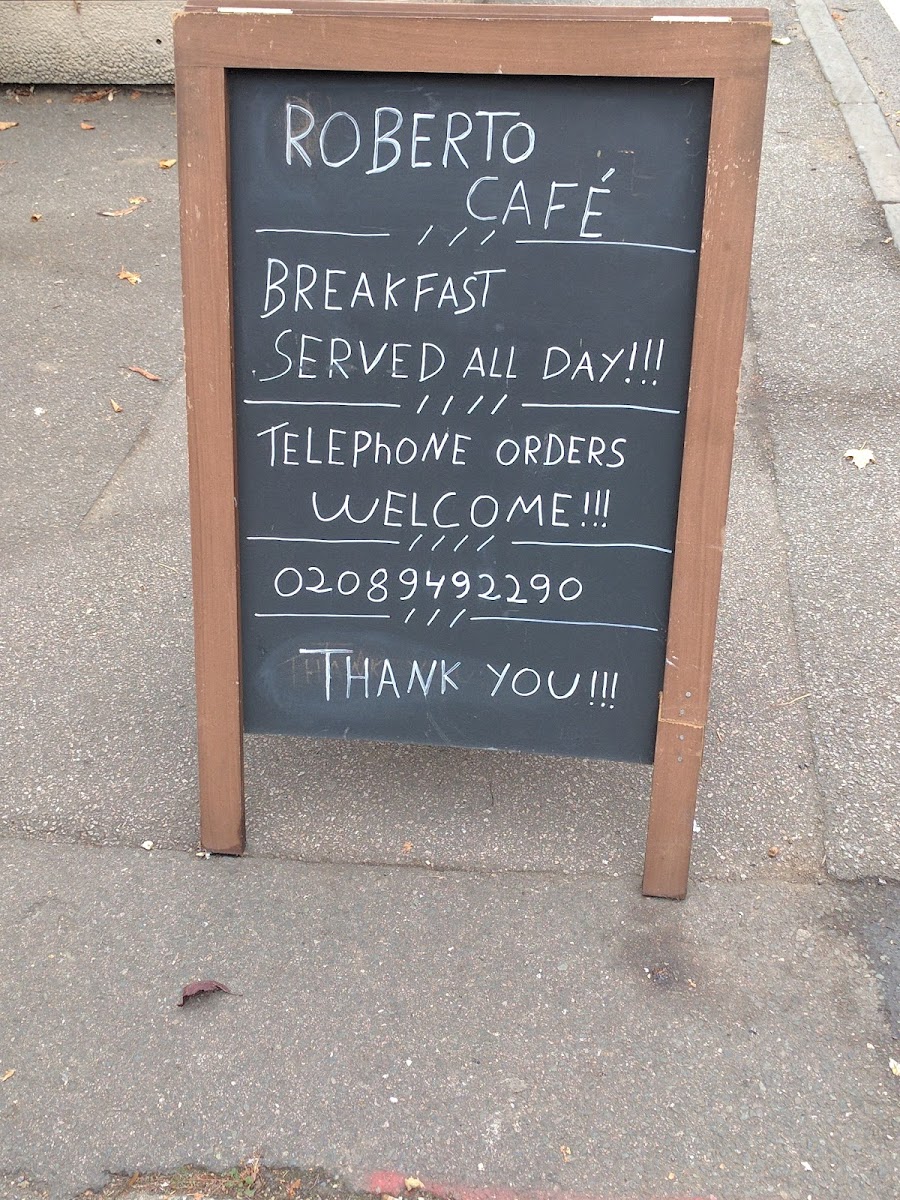 ROBERTO
CAFÉ
BREAKFAST
SERVED ALL DAY!!!
TELEPhONE ORDERS
WELCOME!!!
02089492290
THANK YOU!!!